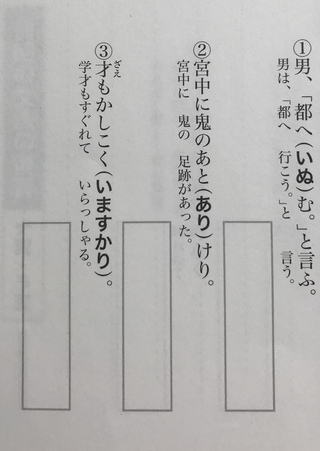 ①男、「都へ(いぬ)む。」と言ふ。
男は、「都へ 行こう。」と 言う。
②宮中に鬼のあと(あり)けり。
宮中に 鬼の 足跡があった。
ざえ
③才もかしこく(いますかり)。
学才もすぐれて いらっしゃる。